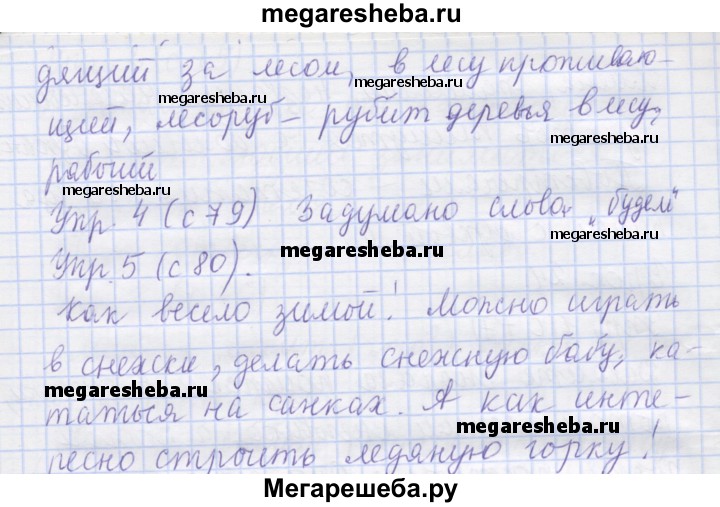 megaresheba.ru
дящий за лесом, в лесу проживаю-
megaresheba.ru megaresheba.ru
щий, лесоруб – рубит деревья в лесу,
megaresheba.ru
рабочий
megaresheba.ru
Упр. 4 (с 79) Задумано слово „будем"
megaresheba.ru
Упр. 5 (с 80).
Как весело зимой! Можно играть
в снежки, делать снежную бабу, ка-
megaresheba.ru megaresheba.ru
таться на санках. А как инте-
ресно строить ледяную горку!
Мегарешеба.ру